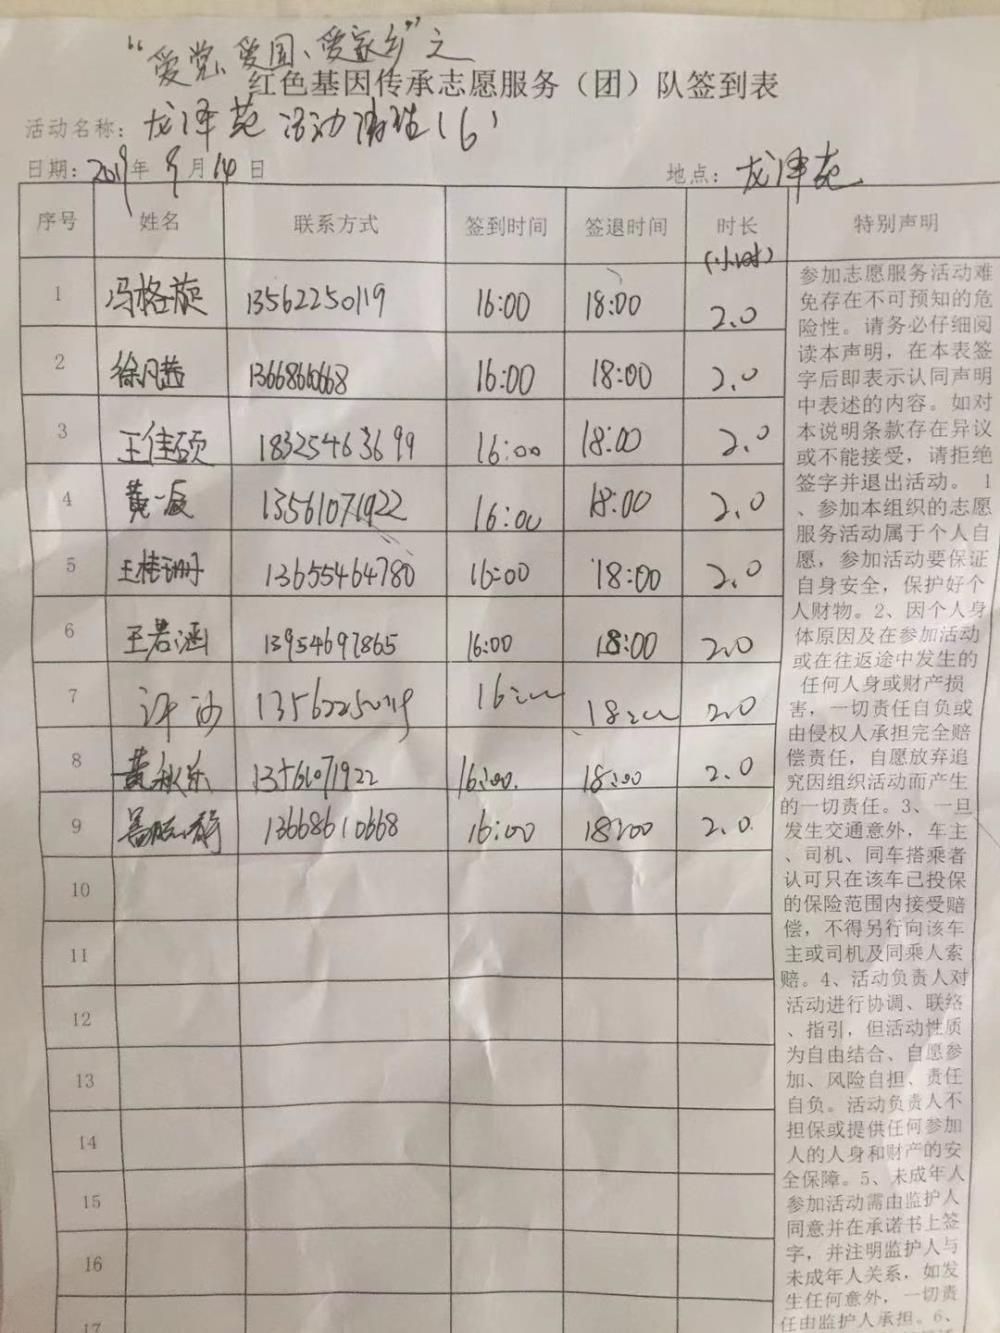 “爱党、爱国、爱家乡”之
红色基因传承志愿服务（团）队签到表
活动名称：龙泽苑活动 (6)
日期：2019年9月14日 地点：龙泽苑
序号 姓名 联系方式 签到时间 签退时间 时长(小时) 特别声明
1 冯格旋 13562250119 16:00 18:00 2.0
2 徐凡茜 13668610668 16:00 18:00 2.0
3 王佳硕 18325463699 16:00 18:00 2.0
4 黄一辰 13561071922 16:00 18:00 2.0
5 王桂珊 13655464780 16:00 18:00 2.0
6 王若涵 13954697865 16:00 18:00 2.0
7 许沙 13562250119 16:00 18:00 2.0
8 黄秋乐 13561071922 16:00 18:00 2.0
9 13668610668 16:00 18:00 2.0
10
11
12
13
14
15
16
17
参加志愿服务活动难
免存在不可预知的危
险性。请务必仔细阅
读本声明，在本表签
字后即表示认同声明
中表述的内容。如对
本说明条款存在异议
或不能接受，请拒绝
签字并退出活动。1
、参加本组织的志愿
服务活动属于个人自
愿，参加活动要保证
自身安全，保护好个
人财物。2、因个人身
体原因及在参加活动
或在往返途中发生的
任何人身或财产损
害，一切责任自负或
由侵权人承担完全赔
偿责任，自愿放弃追
究因组织活动而产生
的一切责任。3、一旦
发生交通意外，车主
、司机、同车搭乘者
认可只在该车已投保
的保险范围内接受赔
偿，不得另行向该车
主或司机及同乘人索
赔。4、活动负责人对
活动进行协调、联络
、指引，但活动性质
为自由结合、自愿参
加、风险自担、责任
自负。活动负责人不
担保或提供任何参加
人的人身和财产的安
全保障。5、未成年人
参加活动需由监护人
同意并在承诺书上签
字，并注明监护人与
未成年人关系，如发
生任何意外，一切责
任由监护人承担。6、